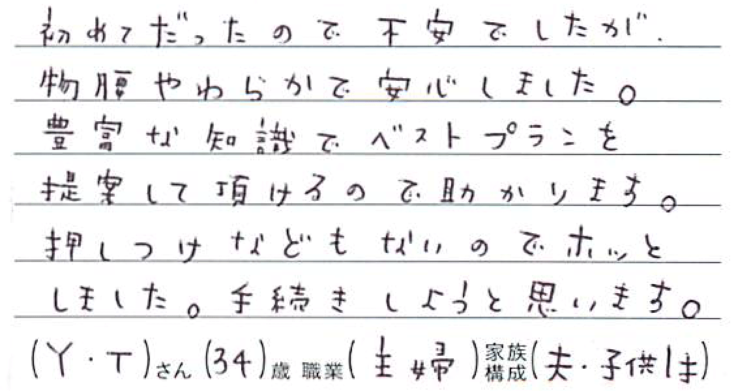 初めてだったので不安でしたが、
物腰やわらかで安心しました。
豊富な知識でベストプランを
提案して頂けるので助かります。
押しつけなどもないのでホッと
しました。手続きしようと思います。
(Y・T)さん(34)歳 職業(主婦)家族構成(夫・子供1才)